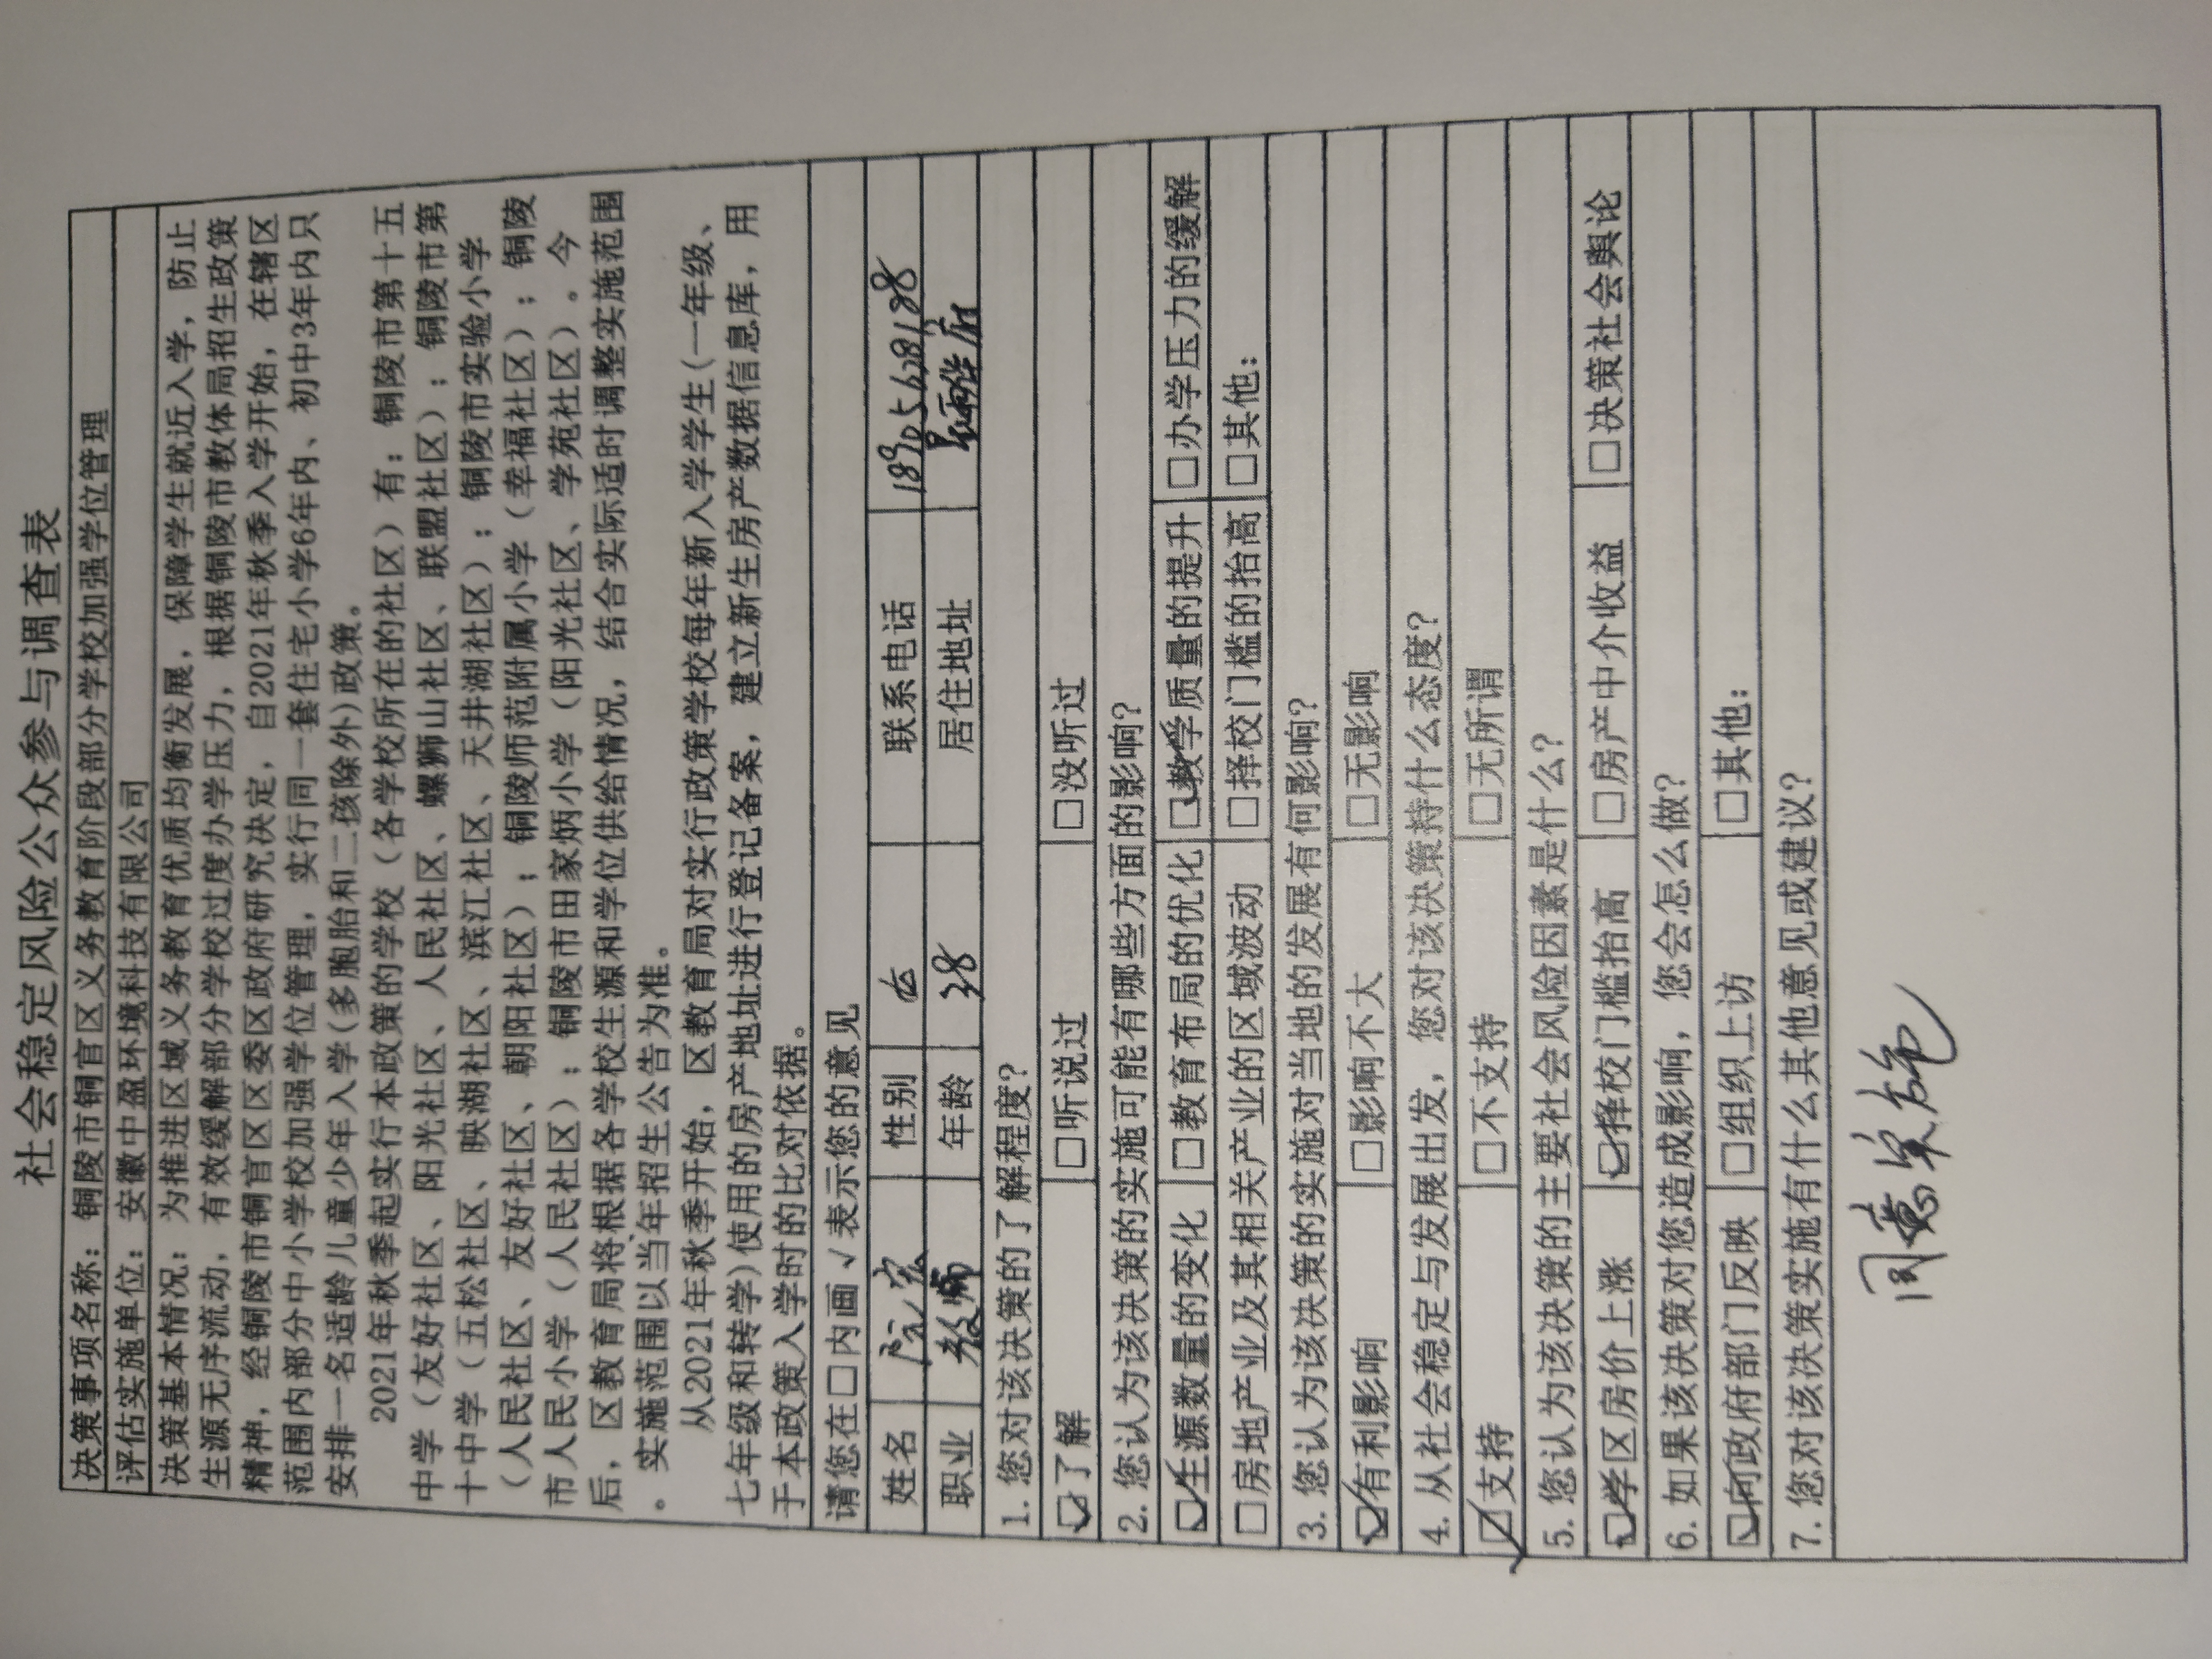 社会稳定风险公众参与调查表
决策事项名称：铜陵市铜官区义务教育阶段部分学校加强学位管理
评估实施单位：安徽中盈环境科技有限公司
决策基本情况：为推进区域义务教育优质均衡发展，保障学生就近入学，防止
生源无序流动，有效缓解部分学校过度办学压力，根据铜陵市教体局招生政策
精神，经铜陵市铜官区区委区政府研究决定，自2021年秋季入学开始，在辖区
范围内部分中小学校加强学位管理，实行同一套住宅小学6年内、初中3年内只
安排一名适龄儿童少年入学(多胞胎和二孩除外)政策。
2021年秋季起实行本政策的学校（各学校所在的社区）有：铜陵市第十五
中学（友好社区、阳光社区、人民社区、螺狮山社区、联盟社区）；铜陵市第
十中学（五松社区、映湖社区、滨江社区、天井湖社区）；铜陵市实验小学
（人民社区、友好社区、朝阳社区）；铜陵师范附属小学（幸福社区）；铜陵
市人民小学（人民社区）；铜陵市田家炳小学（阳光社区、学苑社区）。今
后，区教育局将根据各学校生源和学位供给情况，结合实际适时调整实施范围
。实施范围以当年招生公告为准。
从2021年秋季开始，区教育局对实行政策学校每年新入学学生(一年级、
七年级和转学)使用的房产地址进行登记备案，建立新生房产数据信息库，用
于本政策入学时的比对依据。
请您在□内画√表示您的意见
姓名 阮宏 性别 女 联系电话 18905628188
职业 教师 年龄 38 居住地址
1. 您对该决策的了解程度？
☑了解 □听说过 □没听过
2. 您认为该决策的实施可能有哪些方面的影响？
☑生源数量的变化 □教育布局的优化 ☑教学质量的提升 □办学压力的缓解
□房地产业及其相关产业的区域波动 □择校门槛的抬高 □其他：
3. 您认为该决策的实施对当地的发展有何影响？
☑有利影响 □影响不大 □无影响
4. 从社会稳定与发展出发，您对该决策持什么态度？
☑支持 □不支持 □无所谓
5. 您认为该决策的主要社会风险因素是什么？
☑学区房价上涨 ☑择校门槛抬高 □房产中介收益 □决策社会舆论
6. 如果该决策对您造成影响，您会怎么做？
☑向政府部门反映 □组织上访 □其他：
7. 您对该决策实施有什么其他意见或建议？
同意实施